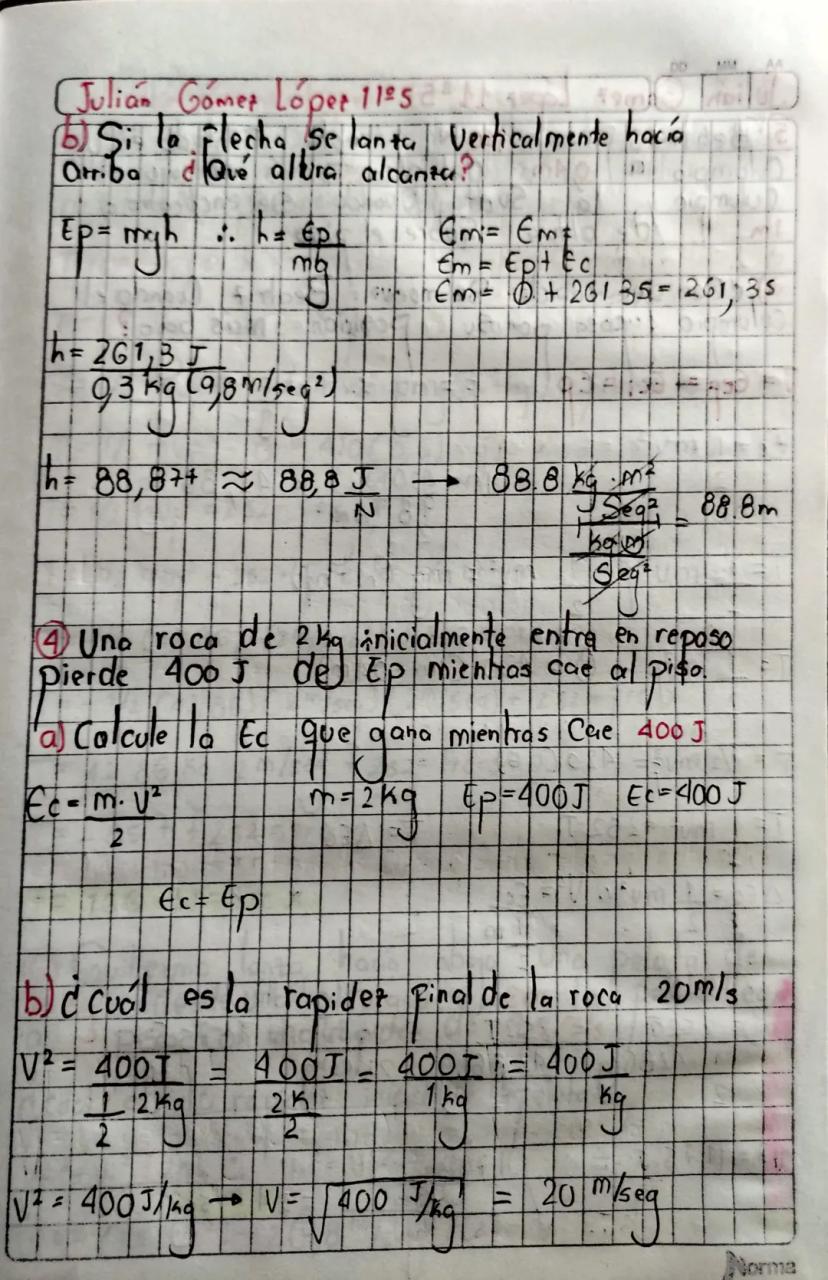 DD MM AA
Julián Gómez López 11º5
b) Si la flecha se lanza verticalmente hacia
arriba ¿Qué altura alcanza?
Ep = mgh ∴ h = Ep/mg
Em = Emf
Em = Ep + Ec
Em = 0 + 261,35 = 261,35
h = 261,3 J / 0,3 kg (9,8 m/seg²)
h = 88,87+ ≈ 88,8 J/N → 88.8 kg·m²/seg² / kg m/seg² = 88.8m
④ Una roca de 2kg inicialmente entra en reposo
pierde 400 J del Ep mientras cae al piso.
a) Calcule la Ec que gana mientras cae 400 J
Ec = m·v²/2 m = 2kg Ep = 400J Ec = 400 J
Ec = Ep
b) ¿cuál es la rapidez final de la roca 20m/s
V² = 400J / ½ 2kg = 400J / 2K/2 = 400J / 1kg = 400 J/kg
V² = 400 J/kg → V = √400 J/kg = 20 m/seg
Norma